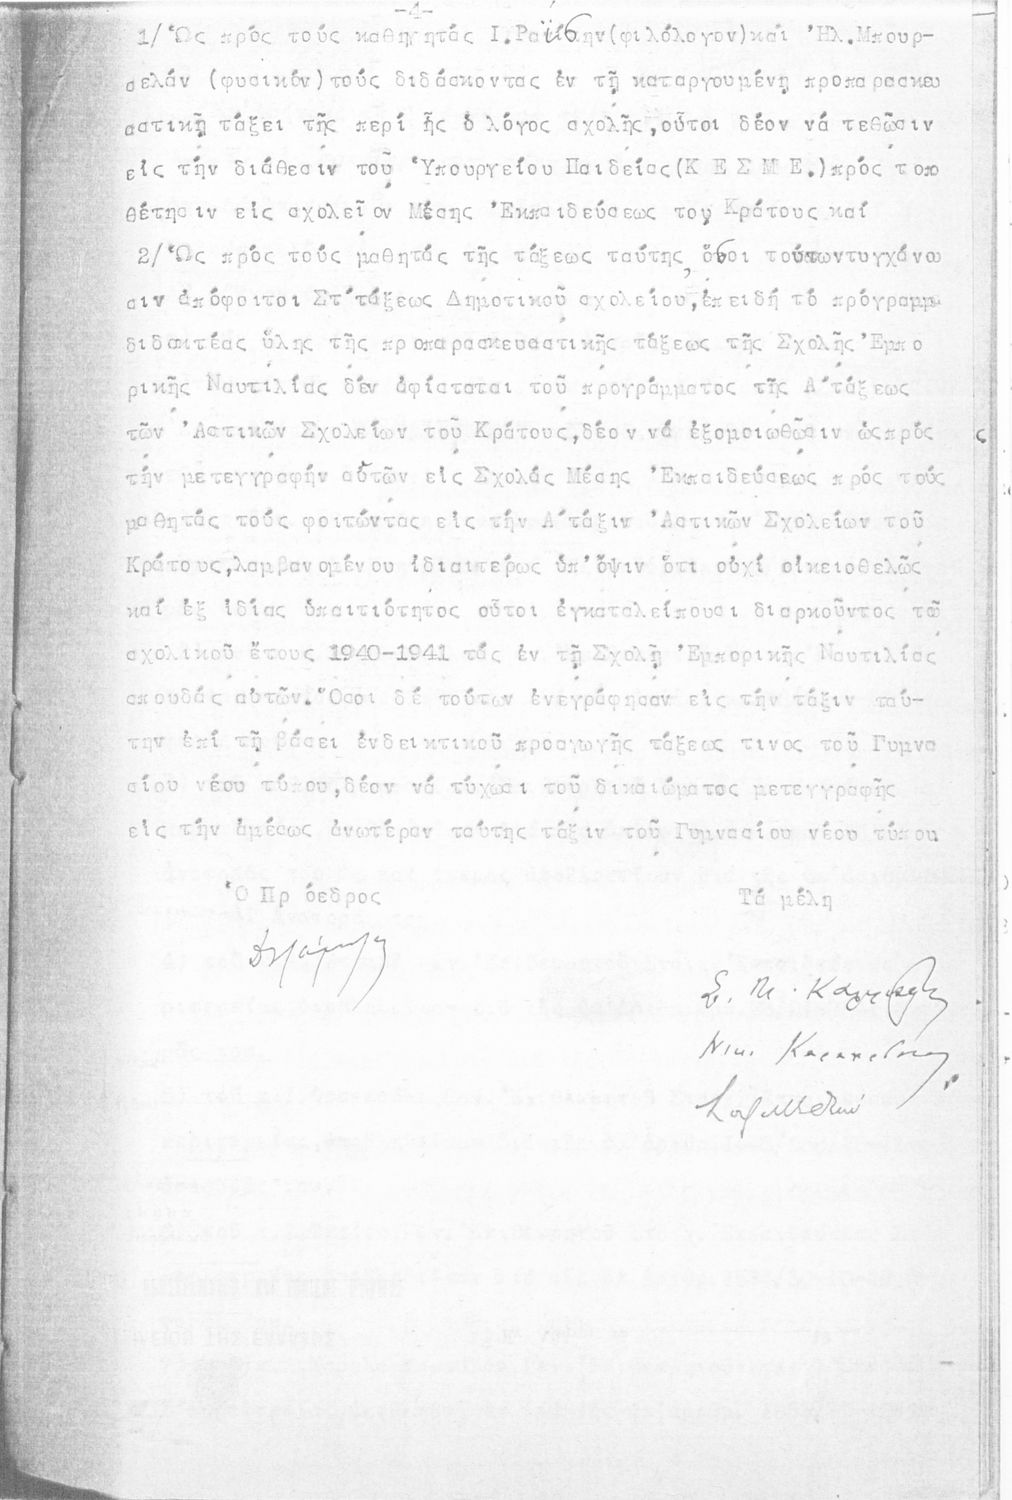 -4-
1/Ὡς πρός τούς καθηγητάς Ι. (φιλόλογον)καί Ἠλ.Μπουρ-
σελάν (φυσικόν)τούς διδάσκοντας ἐν τῇ καταργουμένῃ προπαρασκευ
αστικῇ τάξει τῆς περί ἧς ὁ λόγος σχολῆς,οὗτοι δέον νά τεθῶσιν
εἰς τήν διάθεσιν τοῦ Ὑπουργείου Παιδείας(Κ Ε Σ Μ Ε.)πρός τοπο
θέτησιν εἰς σχολεῖον Μέσης Ἐκπαιδεύσεως τοῦ Κράτους καί
2/Ὡς πρός τούς μαθητάς τῆς τάξεως ταύτης,ὅσοι τούτωντυγχάνου
σιν ἀπόφοιτοι Στ'τάξεως Δημοτικοῦ σχολείου,ἐπειδή τό πρόγραμμα
διδακτέας ὕλης τῆς προπαρασκευαστικῆς τάξεως τῆς Σχολῆς Ἐμπο
ρικῆς Ναυτιλίας δέν ἀφίσταται τοῦ προγράμματος τῆς Α'τάξεως
τῶν Ἀστικῶν Σχολείων τοῦ Κράτους,δέον νά ἐξομοιωθῶσιν ὡςπρός
τήν μετεγγραφήν αὐτῶν εἰς Σχολάς Μέσης Ἐκπαιδεύσεως πρός τούς
μαθητάς τούς φοιτῶντας εἰς τήν Α'τάξιν Ἀστικῶν Σχολείων τοῦ
Κράτους,λαμβανομένου ἰδιαιτέρως ὑπ'ὄψιν ὅτι οὐχί οἰκειοθελῶς
καί ἐξ ἰδίας ὑπαιτιότητος οὗτοι ἐγκαταλείπουσι διαρκοῦντος τοῦ
σχολικοῦ ἔτους 1940-1941 τάς ἐν τῇ Σχολῇ Ἐμπορικῆς Ναυτιλίας
σπουδάς αὐτῶν.Ὅσοι δέ τούτων ἐνεγράφησαν εἰς τήν τάξιν ταύ-
την ἐπί τῇ βάσει ἐνδεικτικοῦ προαγωγῆς τάξεως τινος τοῦ Γυμνα
σίου νέου τύπου,δέον νά τύχωσι τοῦ δικαιώματος μετεγγραφῆς
εἰς τήν ἀμέσως ἀνωτέραν ταύτης τάξιν τοῦ Γυμνασίου νέου τύπου
Ὁ Πρόεδρος Τά μέλη
Σ. Μ.
Νικ.